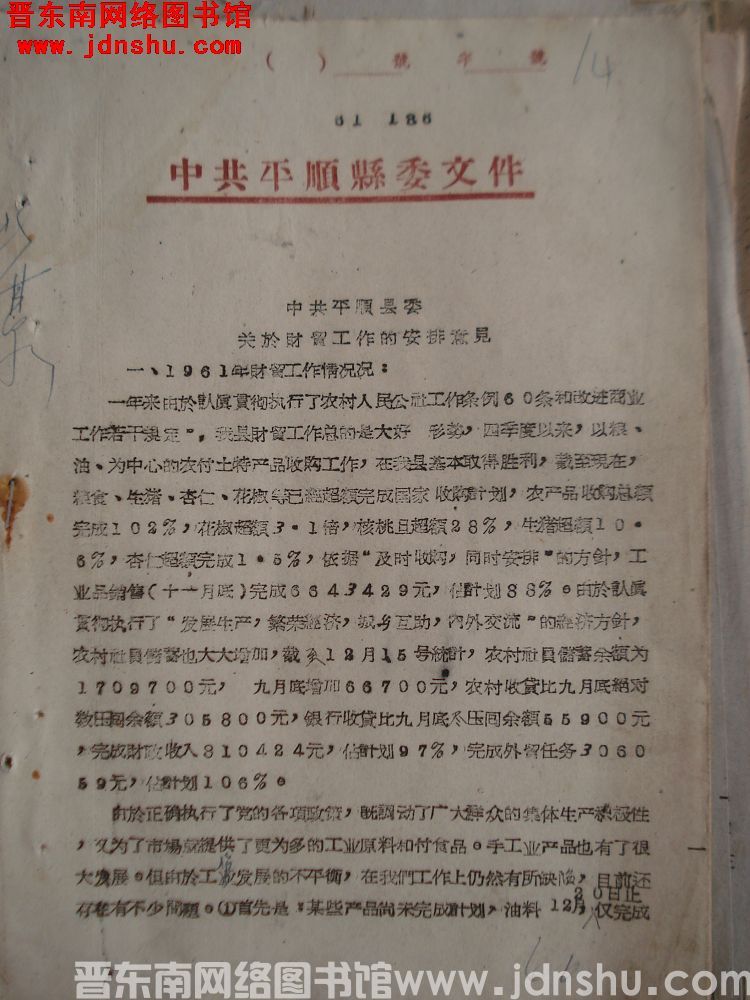 晋东南网络图书馆
www.jdnshu.com
( ) 號 年 號
14
61 186
中共平順縣委文件
中共平順县委
关於財貿工作的安排意見
一、1961年財貿工作情况况：
一年来由於認眞貫彻执行了农村人民公社工作条例60条和改进商业
工作若干決定”，我县財貿工作总的是大好 形势，四季度以来，以粮、
油、为中心的农付土特产品收购工作，在我县基本取得胜利，截至現在，
粮食、生猪、杏仁、花椒等已經超額完成国家收购計划，农产品收购总額
完成102%，花椒超額3·1倍，核桃且超額28%，生猪超額10·
6%，杏仁超額完成1·5%，依据“及时收购，同时安排”的方針，工
业品銷售(十一月底)完成6643429元，佔計划88%。由於認眞
貫彻执行了“发展生产，繁荣經济，城乡互助，內外交流”的經济方針，
农村社員儲蓄也大大增加，截至12月15号統計，农村社員儲蓄余額为
1709700元， 九月底增加66700元，农村收貸比九月底絕对
数压囘余額305800元，銀行收貸比九月底压囘余額55900元
，完成財政收入810424元，佔計划97%，完成外貿任务3060
59元，佔計划106%。
由於正确执行了党的各項政策，既調动了广大群众的集体生产积极性
，又为了市場提供了更为多的工业原料和付食品。手工业产品也有了很
大发展。但由於工业发展的不平衡，在我們工作上仍然有所缺陷，目前还
存在有不少問題。(1)首先是：某些产品尚未完成計划，油料12月20日止仅完成
晋东南网络图书馆www.jdnshu.com